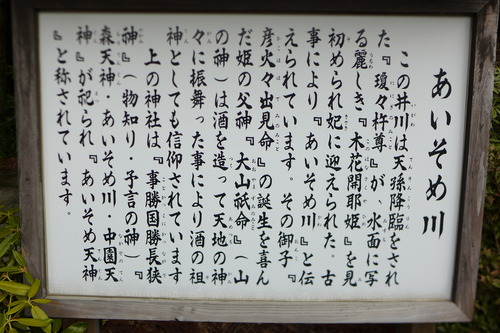 あいそめ川
この井川は天孫降臨をされ
た『瓊々杵尊』が、水面に写
る麗しき、『木花開耶姫』を見
初められ妃に迎えられた。古
事により『あいそめ川』と伝
えられています。その御子『
彦火々出見命』の誕生を喜ん
だ姫の父神『大山祇命』（山
の神）は酒を造って天地の神
々に振舞った事により酒の祖
神としても信仰されています
上の神社は『事勝国勝長狭
神』（物知り・予言の神）『
森天神・あいそめ川・中園天
神』が祀られ『あいそめ天神
』と称されています。